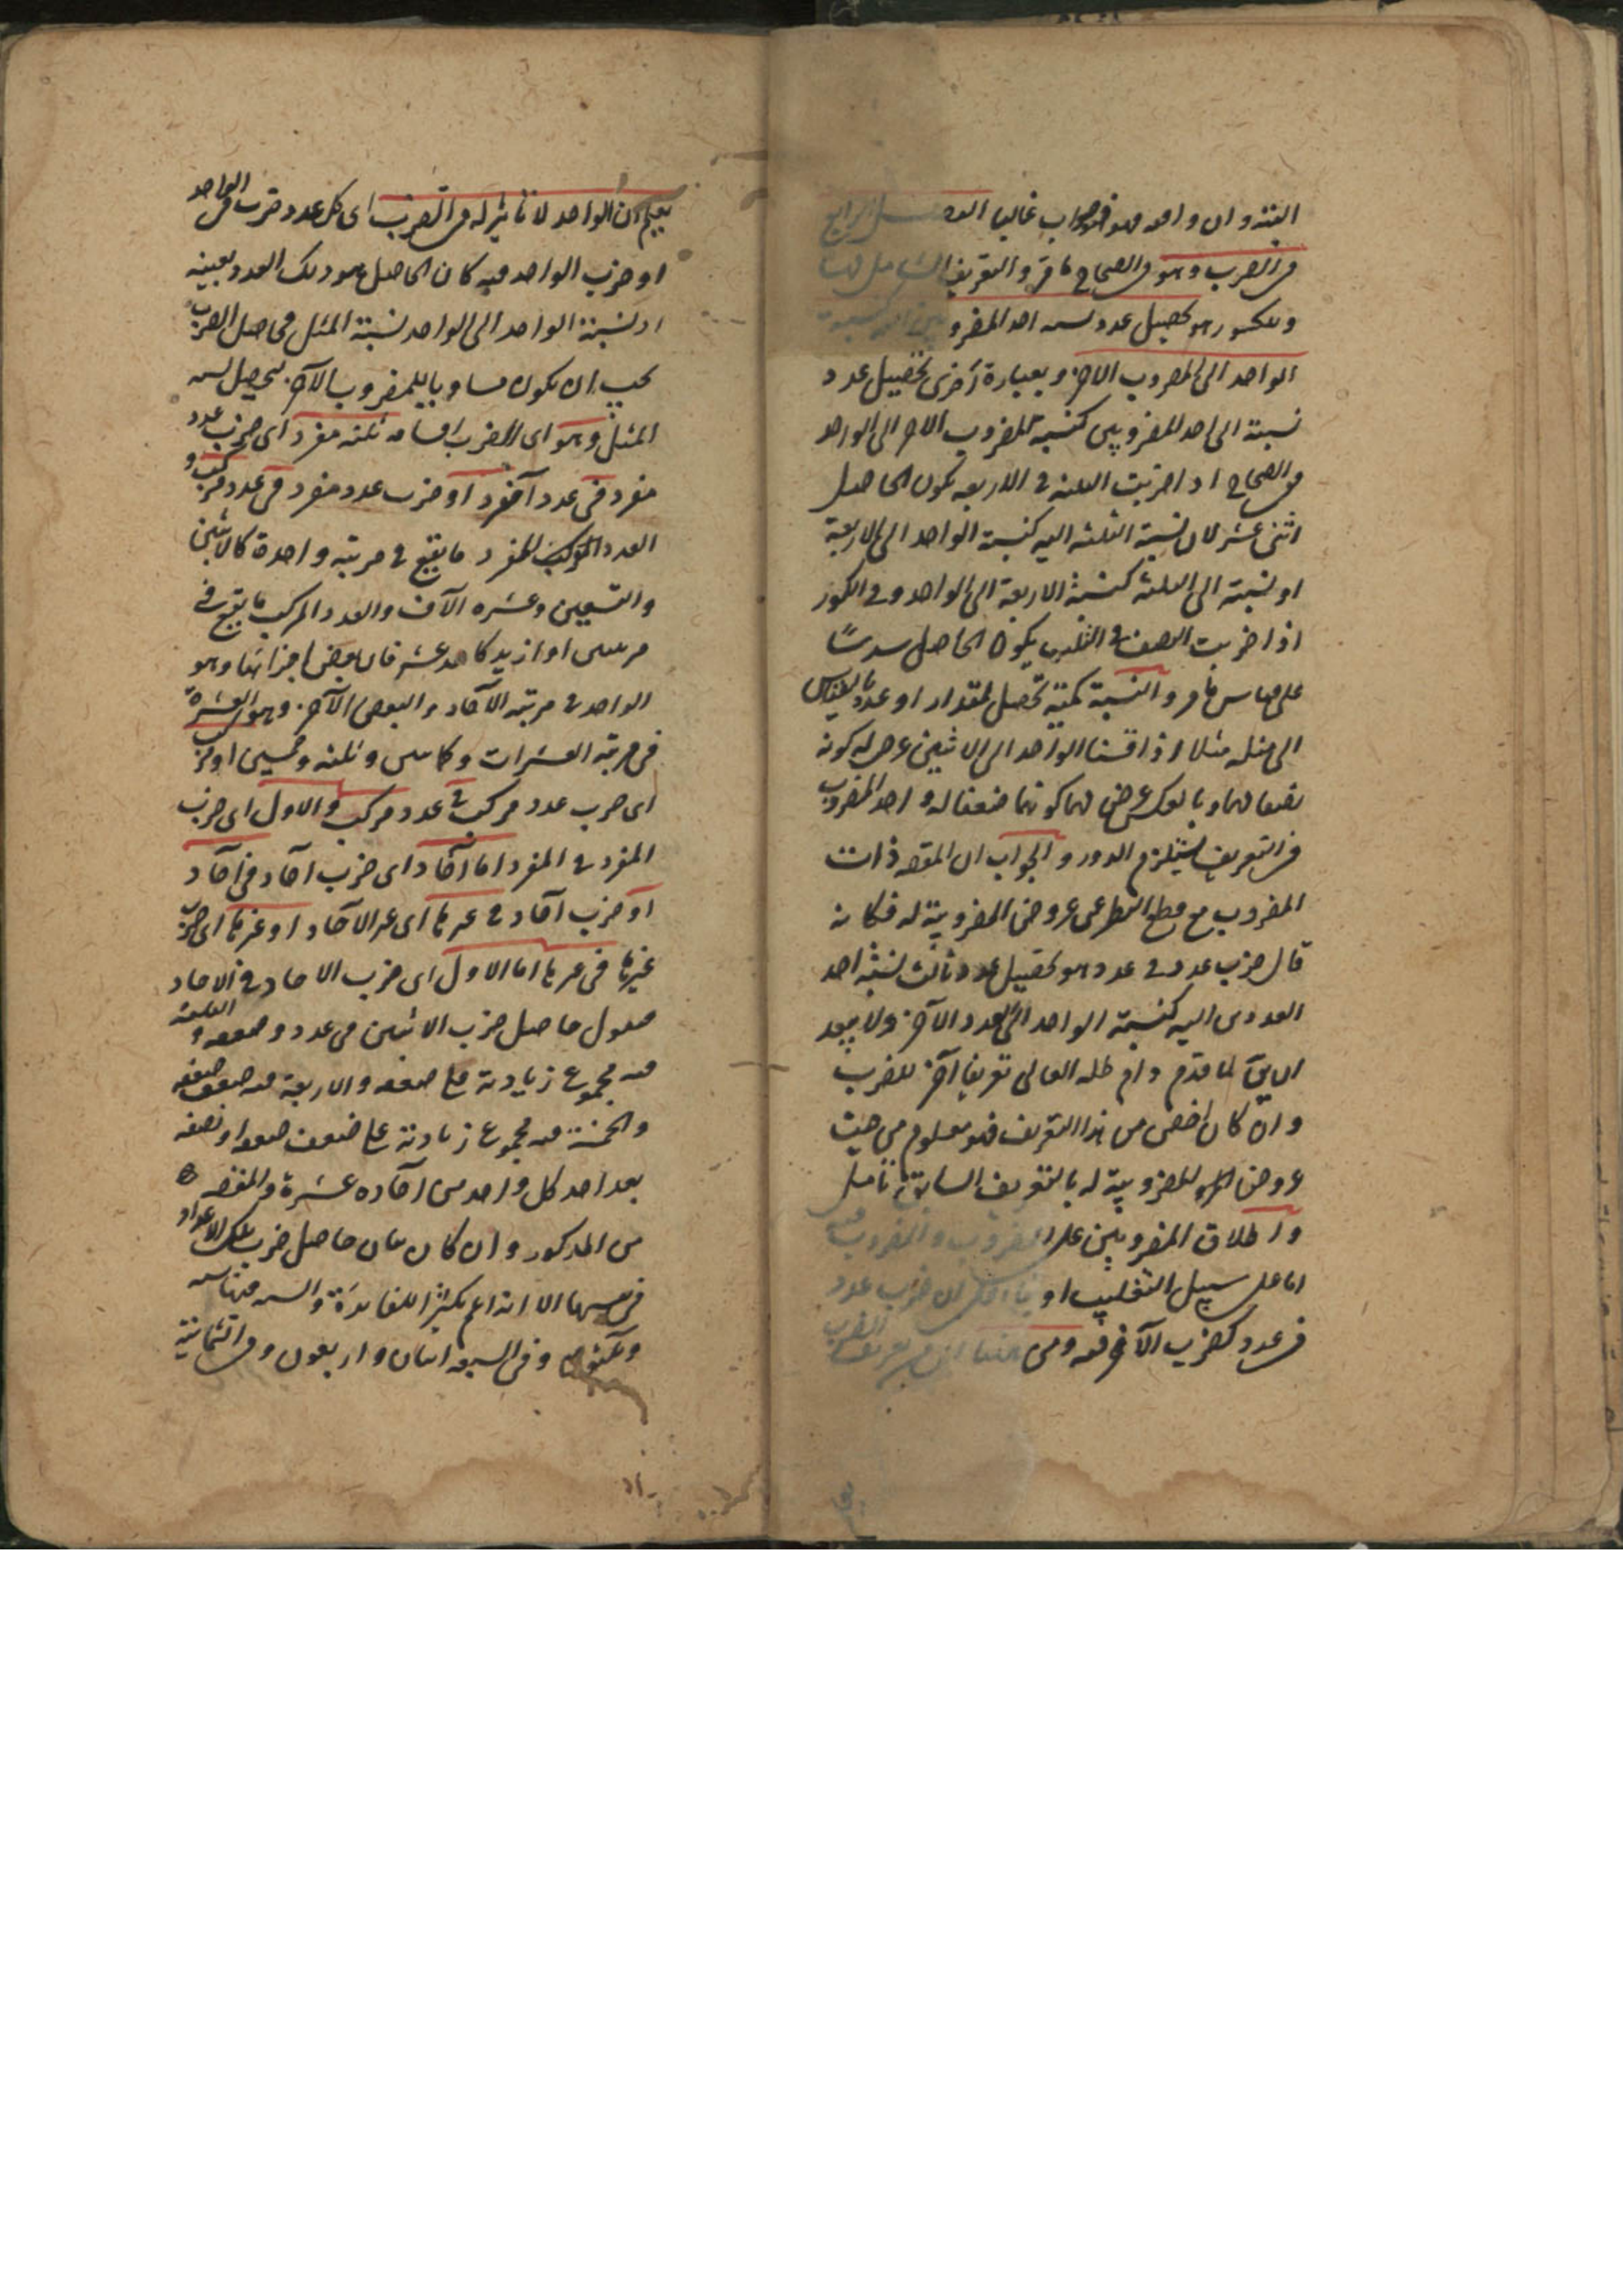 البتة وان وافقه فهو صواب غالبا الفصل الرابع
فى الضرب وهو فى الصحاح ما مر والتعريف الشامل لها
وللكسور هو تحصيل عدد نسبة احد المضروبين اليه كنسبة
الواحد الى المضروب الاخر وبعبارة اخرى تحصيل عدد
نسبة الى احد المضروبين كنسبة المضروب الاخر الى الواحد
ففى الصحاح اذا ضربت الثلثة فى الاربعة يكون الحاصل
اثنى عشر لان نسبة الثلثة اليه كنسبة الواحد الى الاربعة
او نسبته الى الثلثة كنسبة الاربعة الى الواحد وفى الكسور
اذا ضربت النصف فى الثلث يكون الحاصل سدسًا
على قياس ما مر والنسبة كمية تحصل لمقدار او عدد بالقياس
الى مثله مثلا اذا قسنا الواحد الى الاثنين عرض له كونه
نصفا لهما وبالعكس عرض لهما كونهما ضعفا له واخذ المضروب
فى التعريف يستلزم الدور والجواب ان المقصود ذات
المضروب مع قطع النظر عن عروض المضروبية له فكانه
قال ضرب عدد فى عدد هو تحصيل عدد ثالث نسبة احد
العددين اليه كنسبة الواحد الى العدد الآخر ولا يبعد
ان يقال ما قدم دام ظله العالى تعريفا آخر للضرب
وان كان اخص من هذا التعريف فهو معلوم من حيث
عروض المضروبية له بالتعريف السابق تامل
واطلاق المضروبين على المضروب والمضروب فيه
اما على سبيل التغليب او لان ضرب عدد
فى عدد كضرب الآخر فيه ومن ههنا اى من تعريف الضرب
يعلم ان الواحد لا تاثير له فى الضرب اى كل عدد ضرب فى الواحد
او ضرب الواحد فيه كان الحاصل هو ذلك العدد بعينه
اذ نسبة الواحد الى الواحد نسبة المثل فحاصل الضرب
يجب ان يكون مساويا للمضروب الآخر ليحصل نسبة
المثل وهو اى الضرب اقسامه ثلثة مفرد اى ضرب عدد
مفرد فى عدد آخر مفرد او ضرب عدد مفرد فى عدد مركب و
العدد المفرد ما يقع فى مرتبة واحدة كالاثنين
والتسعين وعشرة الآف والعدد المركب ما يقع فى
مرتبتين او ازيد كاحد عشر فان بعض اجزائها وهو
الواحد فى مرتبة الآحاد والبعض الآخر وهو العشرة
فى مرتبة العشرات وكمائتين وثلثة وخمسين او مركب
اى ضرب عدد مركب فى عدد مركب والاول اى ضرب
المفرد فى المفرد اما آحاد اى ضرب آحاد فى آحاد
او ضرب آحاد فى غيرها اى غير الآحاد او غيرها اى ضرب
غيرها فى غيرها اما الاول اى ضرب الاحاد فى الاحاد
فنقول حاصل ضرب الاثنين فى عدد ضعفه و الثلثة
فيه مجموع زيادته على ضعفه والاربعة فيه ضعف ضعفه
والخمسة فيه مجموع زيادته على ضعف ضعفه او نصفه
بعد اخذ كل واحد من آحاده عشرة والمقصود
من المذكور وان كان بيان حاصل ضرب تلك الاعداد
فى نفسها الا انه اعم تكثيرا للفائدة والستة فيها ستة
وثلثون وفى السبعة اثنان واربعون وفى الثمانية